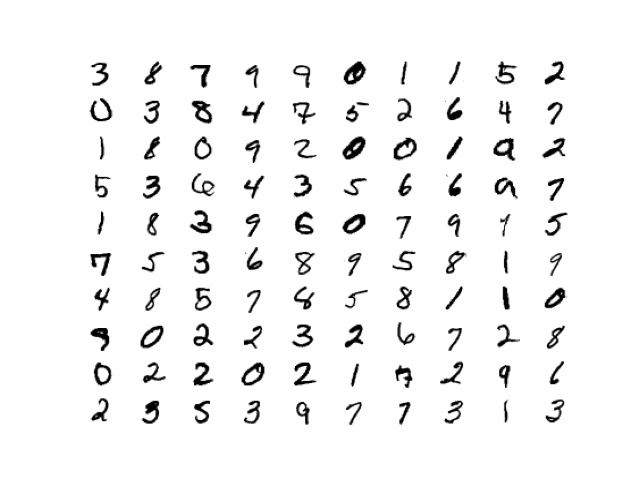 3 8 7 9 9 0 1 1 5 2
0 3 8 4 7 5 2 6 4 7
1 8 0 9 2 0 0 1 9 2
5 3 6 4 3 5 6 6 9 7
1 8 3 9 6 0 7 9 9 5
7 5 3 6 8 9 5 8 1 9
4 8 5 7 8 5 8 1 1 0
9 0 2 2 3 2 6 7 2 8
0 2 2 0 2 1 7 2 9 6
2 3 5 3 9 7 7 3 1 3